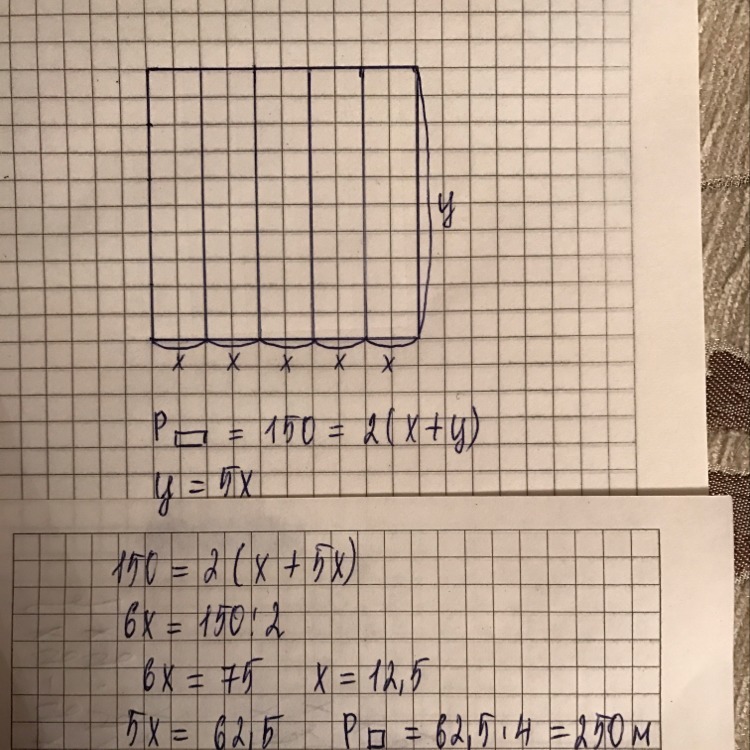 y
x x x x x
P▭ = 150 = 2(x+y)
y = 5x
150 = 2(x + 5x)
6x = 150:2
6x = 75 x = 12,5
5x = 62,5 P□ = 62,5·4 = 250м